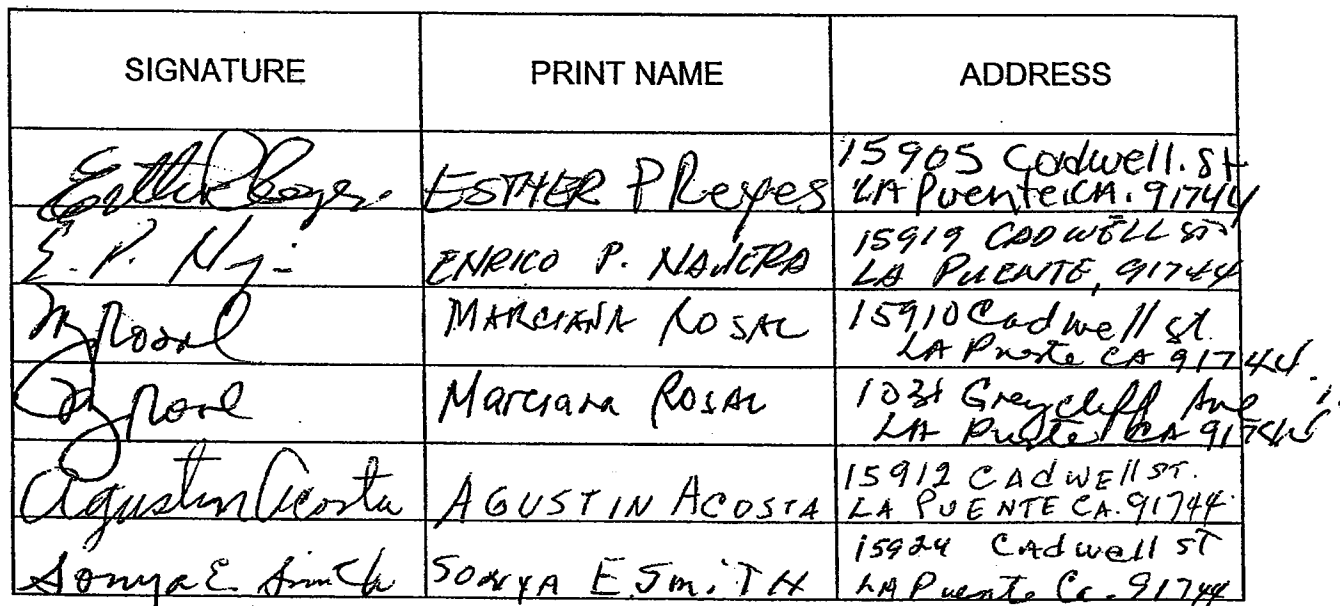 SIGNATURE PRINT NAME ADDRESS
ESTHER P Reyes 15905 Cadwell. St
LA Puente. CA. 91744
E. P. ENRICO P. 15919 CADWELL ST
LA PUENTE, 91744
M Rosal MARCIANA ROSAL 15910 Cadwell st.
LA Puente CA 91744
M Rosal Marciana ROSAL Greycliff Ave
LA Puente CA
Agustin Acosta AGUSTIN ACOSTA 15912 CADWELL ST.
LA PUENTE CA. 91744
Sonya E. Smith SONYA E. SmiTH 15924 Cadwell ST
LA Puente Ca. 91744